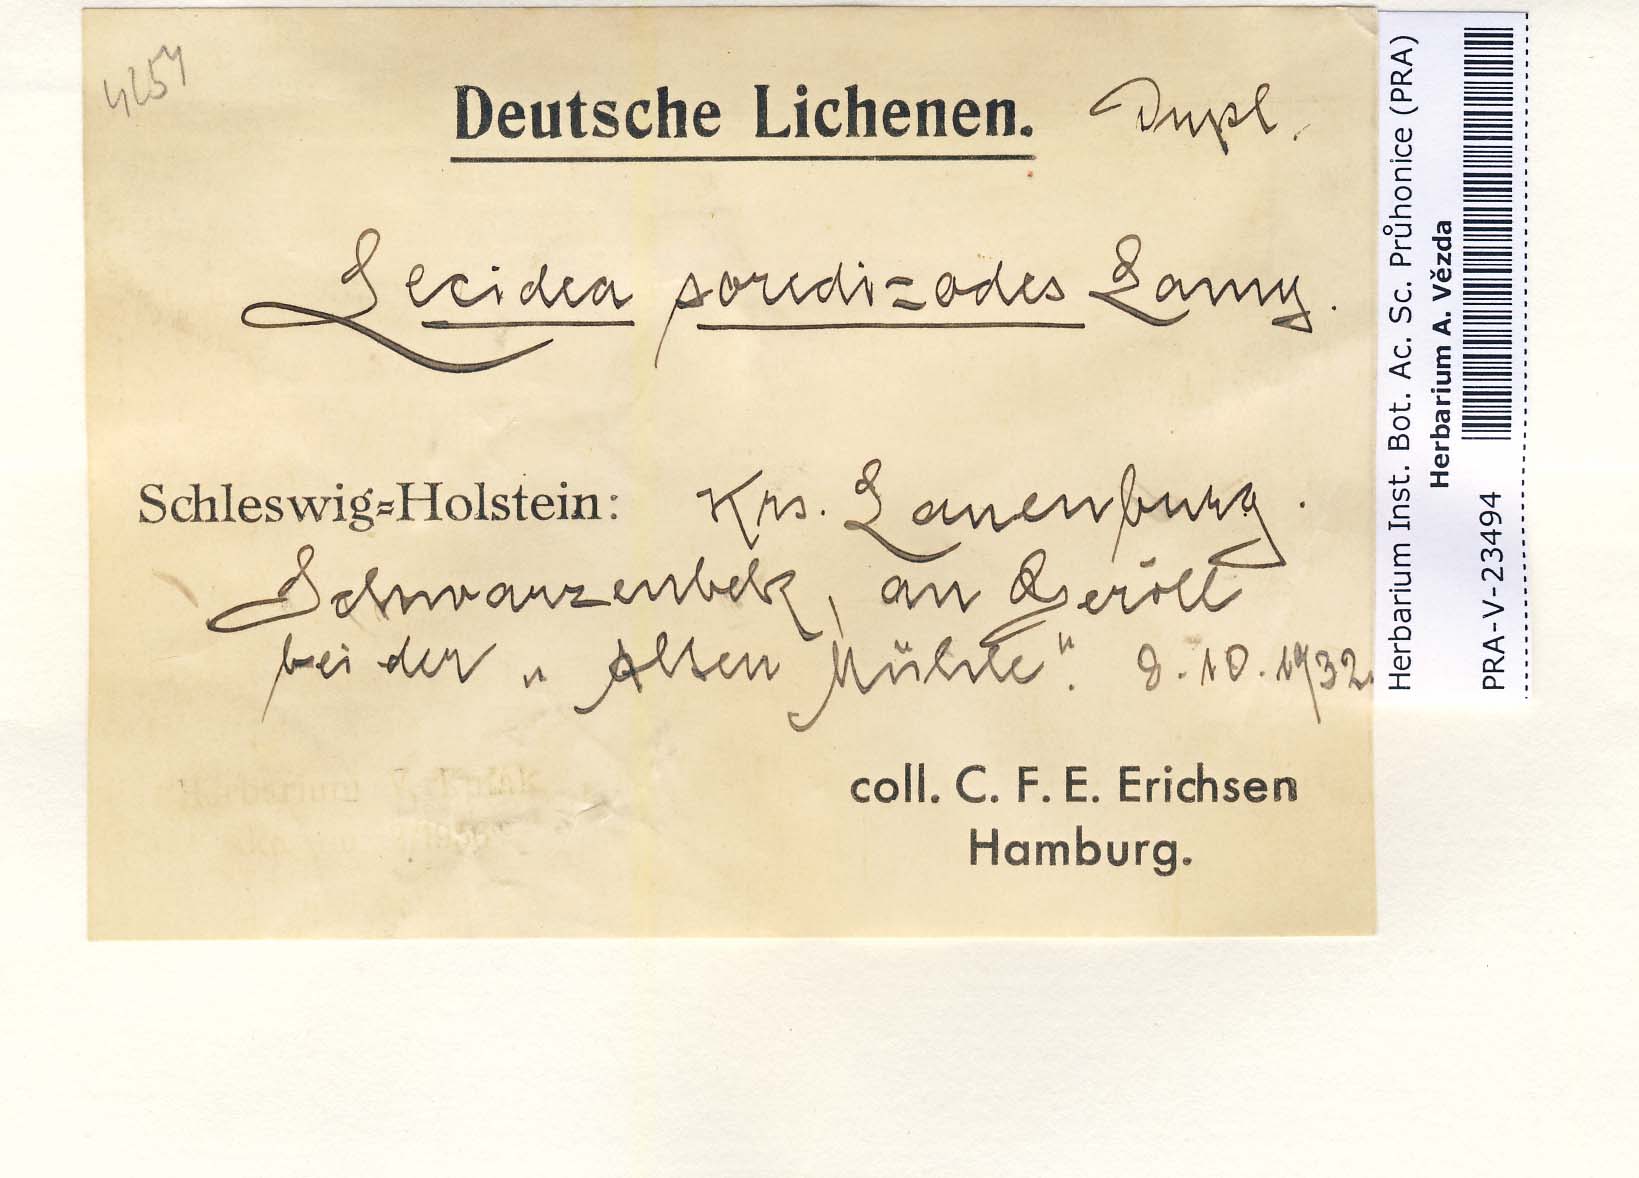 4254
Deutsche Lichenen. Dupl.
Lecidea soredi=zodes Lamy.
Schleswig=Holstein: Krs. Lauenburg.
Schwarzenbek, an Geröll
bei der „Alten Mühle". 8.10.1932.
Herbarium
coll. C. F. E. Erichsen
Hamburg.
Herbarium Inst. Bot. Ac. Sc. Průhonice (PRA)
Herbarium A. Vězda
PRA-V-23494